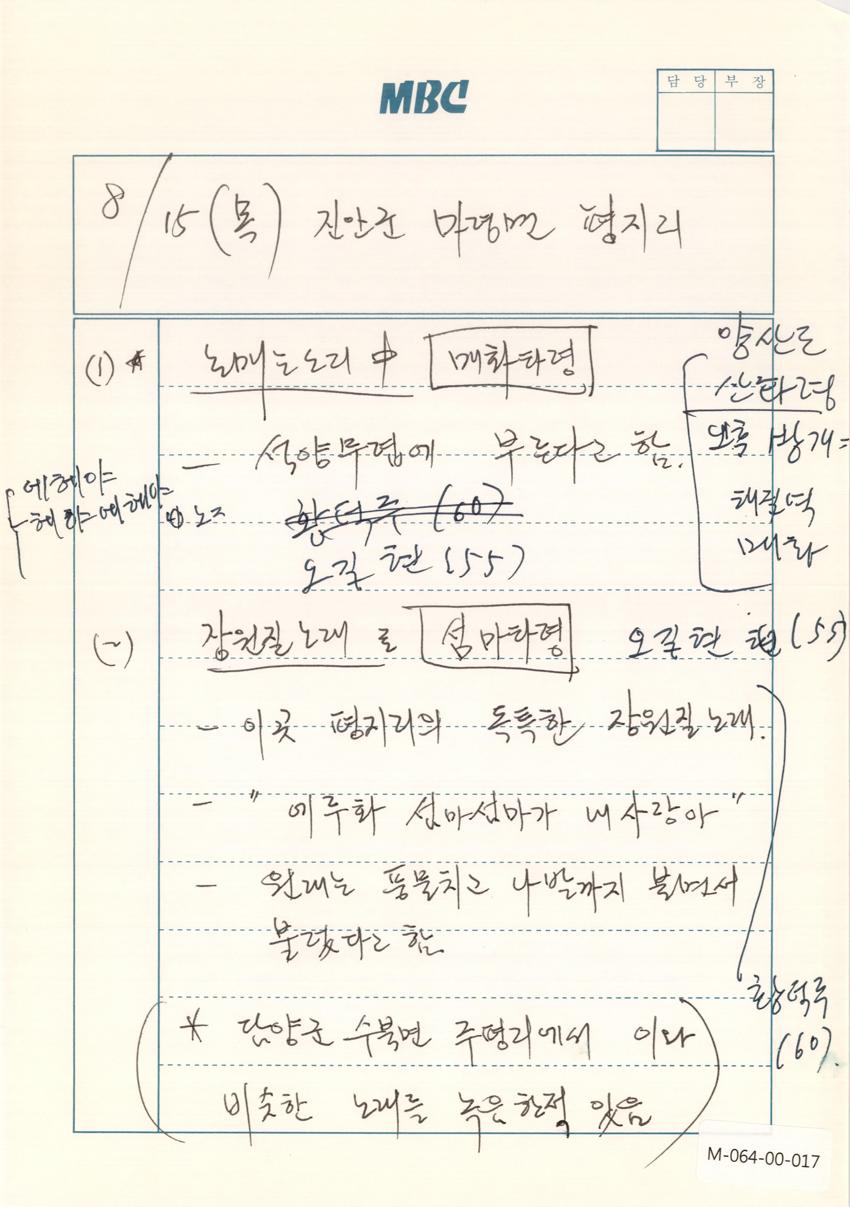 MBC
담 당 부 장
8/15 (목) 진안군 마령면 평지리
(1) * 논매는노리 中 매화타령
양산도
산타령
- 석양무렵에 부른다고 함.
방개=
에헤야=
헤야=에헤야=
황덕주 (60)
오길현 (55)
매화
(2) 장원질노래 로 섬마타령 오길현 (55)
- 이곳 평지리의 독특한 장원질노래.
- " 에루화 섬마섬마가 내사랑아 "
- 원래는 풍물치고 나발까지 불면서
불렀다고 함.
황덕주
(60).
* 담양군 수북면 주평리에서 이와
비슷한 노래를 녹음한적 있음
M-064-00-017